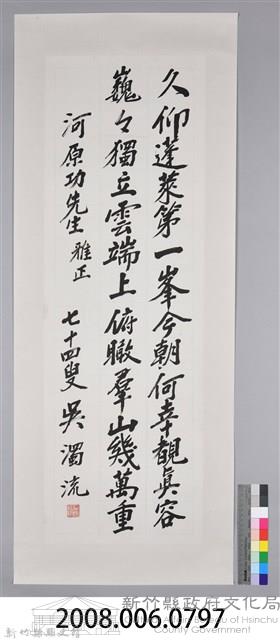 久仰達萊第一峯今朝何幸覩真容
巍々獨立雲端上俯瞰羣山幾萬重
河原功先生 雅正
七十四叟 吳濁流
新竹縣政府文化局
Cultural Affairs Bureau of Hsinchu
County Government
2008.006.0797